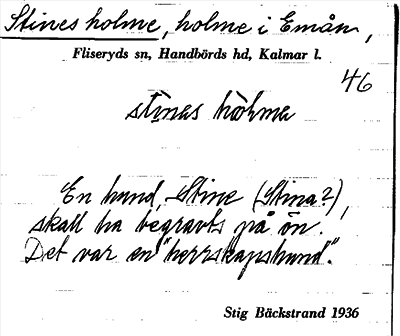 Stines holme, holme i Emån,
Fliseryds sn, Handbörds hd, Kalmar l.
46
stìnas hòlma
En hund, Stine (Stina?),
skall ha begravts på ön.
Det var en "herrskapshund".
Stig Bäckstrand 1936